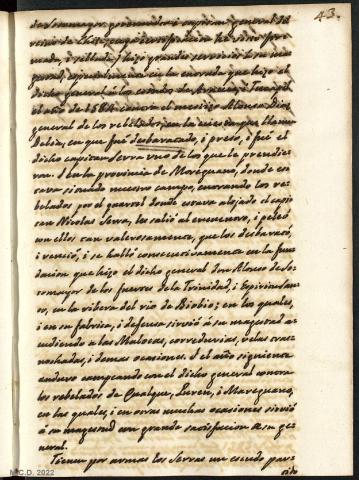 43.
de Sotomayor, governador i capitan general del
reino de Chile,
nada, i
poral, especialmente en la entrada que hizo el
dicho general á los estados de Arauco, i Tucapel
el año de 1584 contra el mestizo Alonso Diaz
general de los rebelados, en la cienega que llaman
en que fué desbaratado, i preso, i fué el
dicho capitan Serra uno de los que le prendie-
ron. I en la provincia de Mareguano, donde es-
tava situado nuestro campo, entrando los re-
belados por el quartel donde estava alojado el capi-
tan Nicolas Serra, les salió al encuentro, i peleó
con ellos tan valerosamente, que los desbarató,
i venció, i se halló consecutivamente en la fun-
dacion que hizo el dicho general don Alonso de So-
tomayor de los fuertes de la Trinidad, i Espiritu San-
to, en la ribera del rio de Biobio; en los quales,
i en su fabrica, i defensa sirvió á su magestad a-
cudiendo á las Malocas, corredurias, velas, tras-
nochadas, i demas ocasiones. I el año siguiente
anduvo campeando con el dicho general contra
los rebelados de Gualqui, Puren, i Mareguano,
en las quales, i en otras muchas ocasiones sirvió
á su magestad con grande satisfacion de su ge-
neral.
Tienen por armas los Serras un escudo par-
tido
M.C.D. 2022